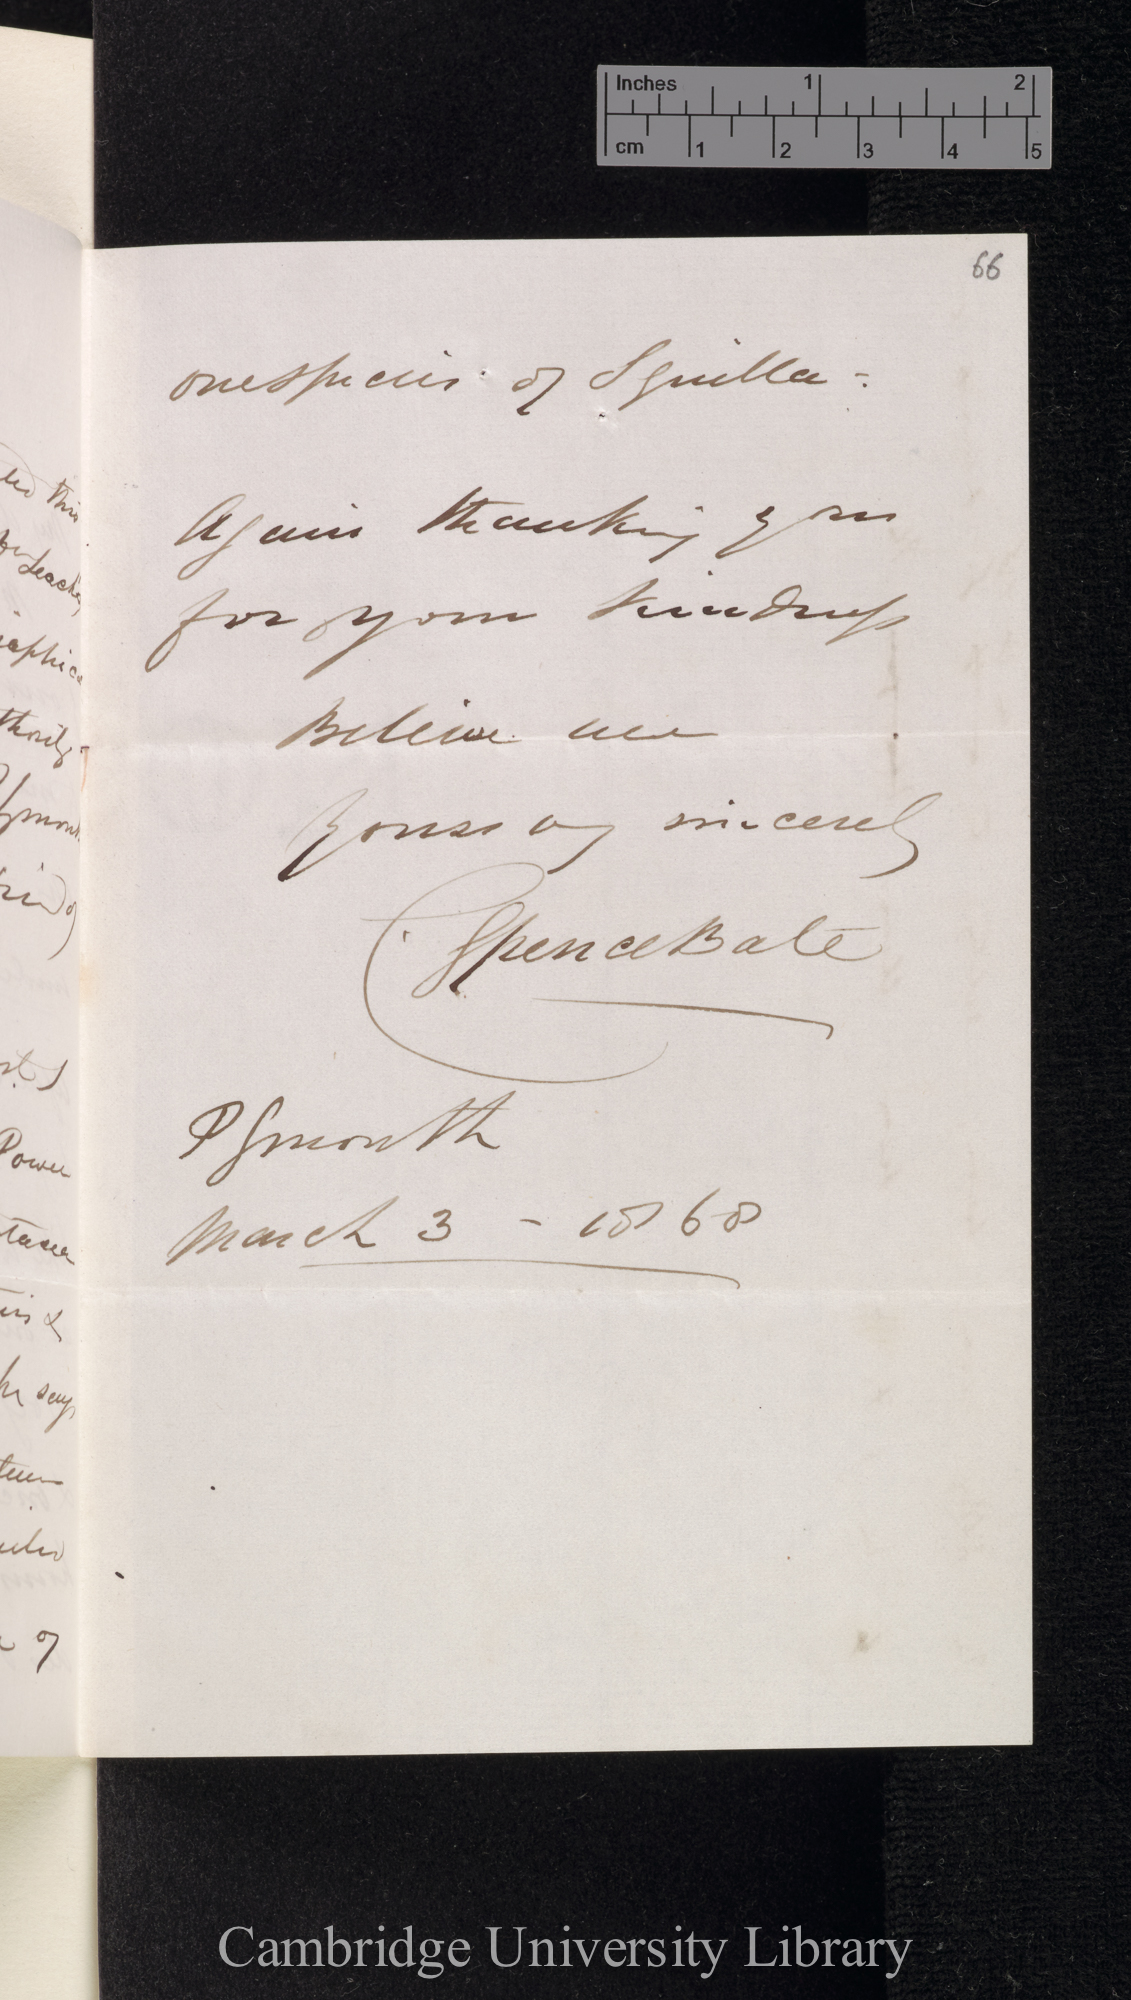 Inches 1 2
cm 1 2 3 4 5
66
one species of Squilla -
Again thanking you
for your kindness
Believe me
Yours very sincerely
C Spence Bate
Plymouth
March 3 - 1868
this
Power
he says
of
Cambridge University Library